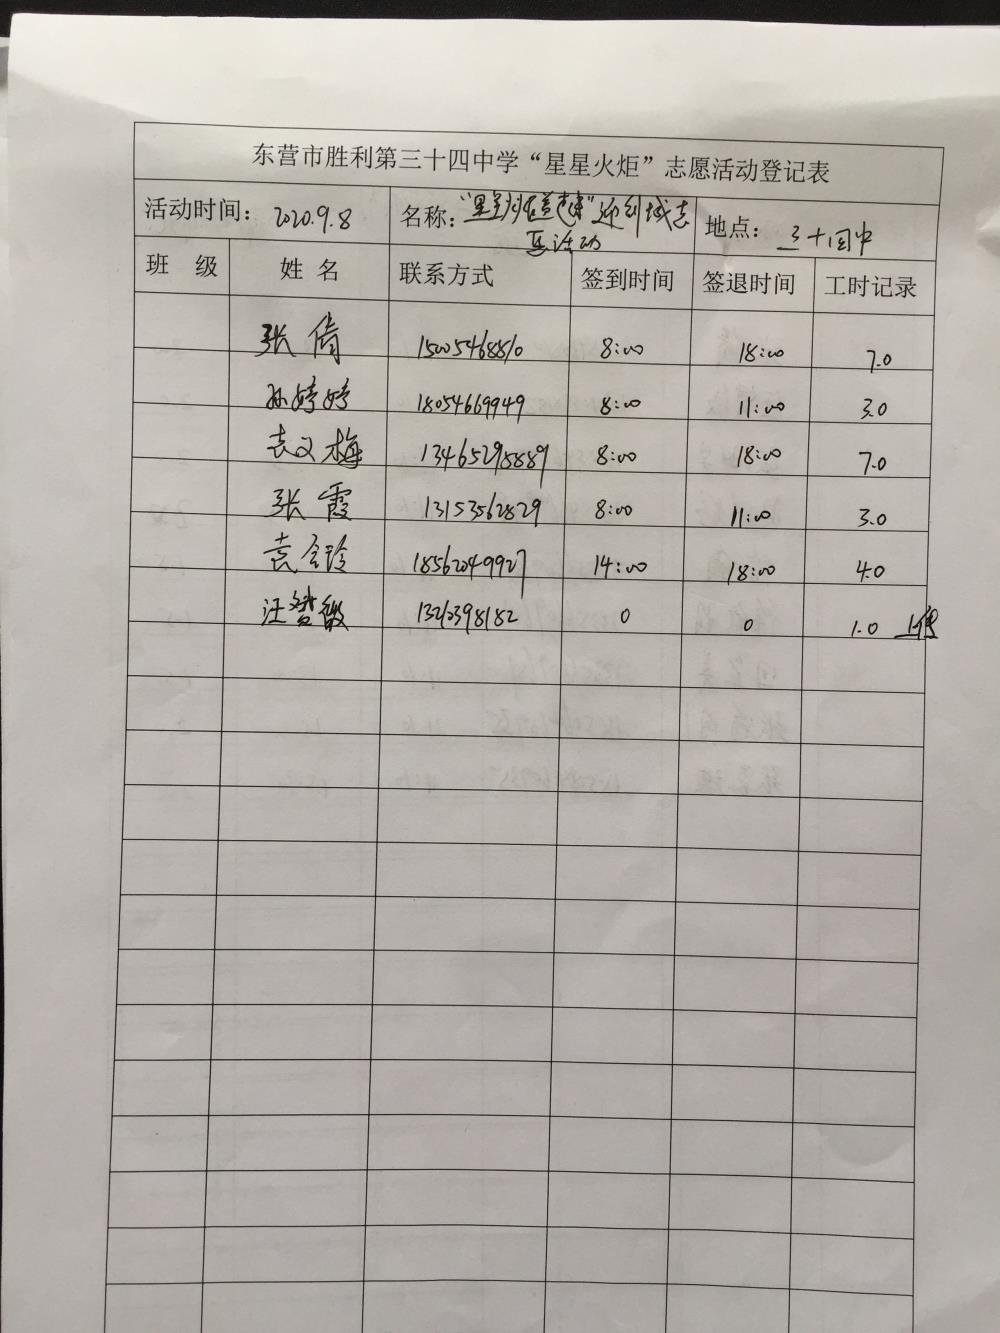 东营市胜利第三十四中学“星星火炬”志愿活动登记表
活动时间： 2020.9.8 名称： 迎创城志 地点： 三十四中
愿活动
班 级 姓 名 联系方式 签到时间 签退时间 工时记录
张倩 15005468810 8:00 18:00 7.0
孙婷婷 18054669949 8:00 11:00 3.0
袁文梅 13465295889 8:00 18:00 7.0
张霞 13153562829 8:00 11:00 3.0
袁金玲 18562049927 14:00 18:00 4.0
汪 0 0 1.0 上传